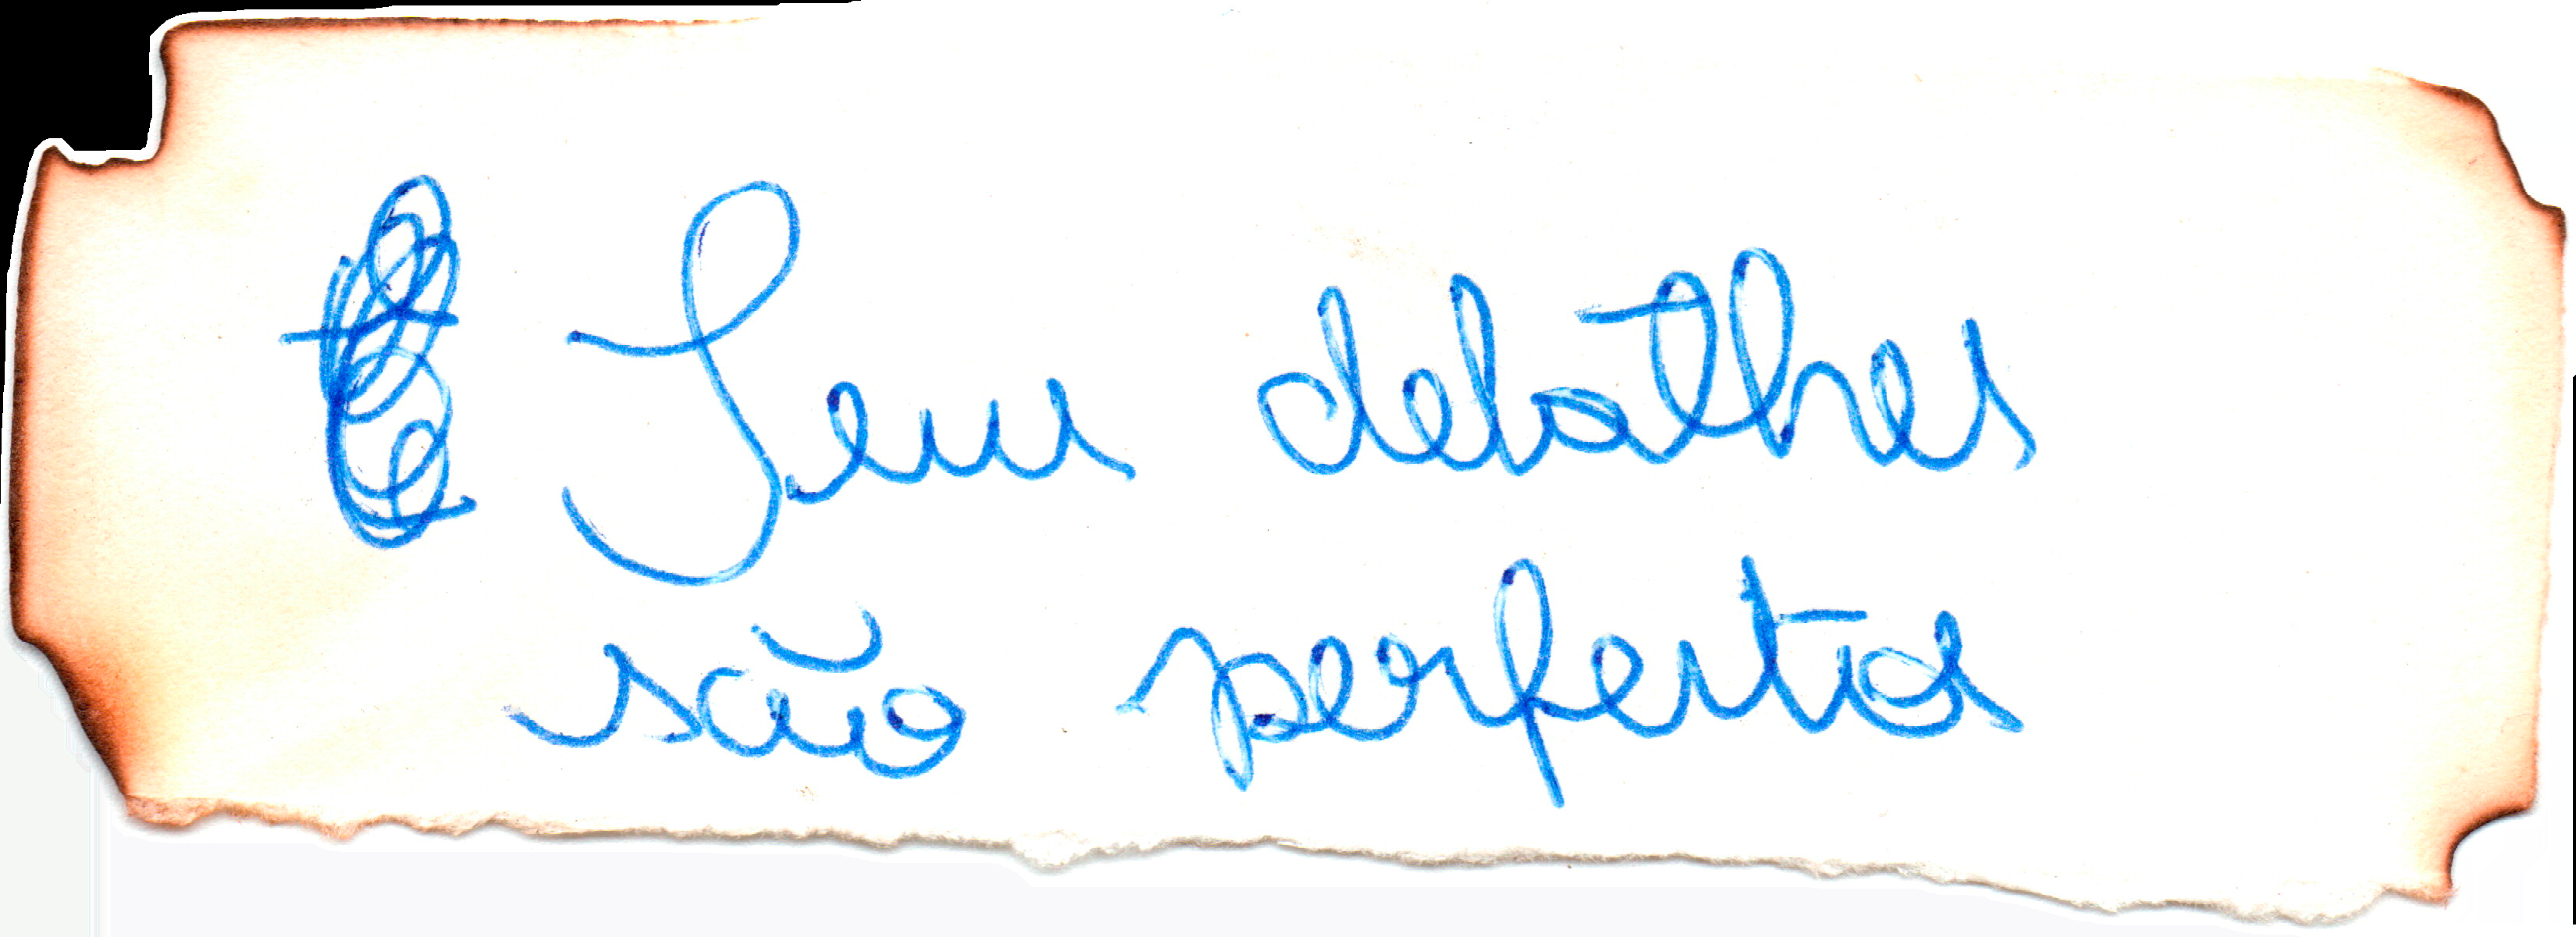 Seus detalhes
são perfeitos